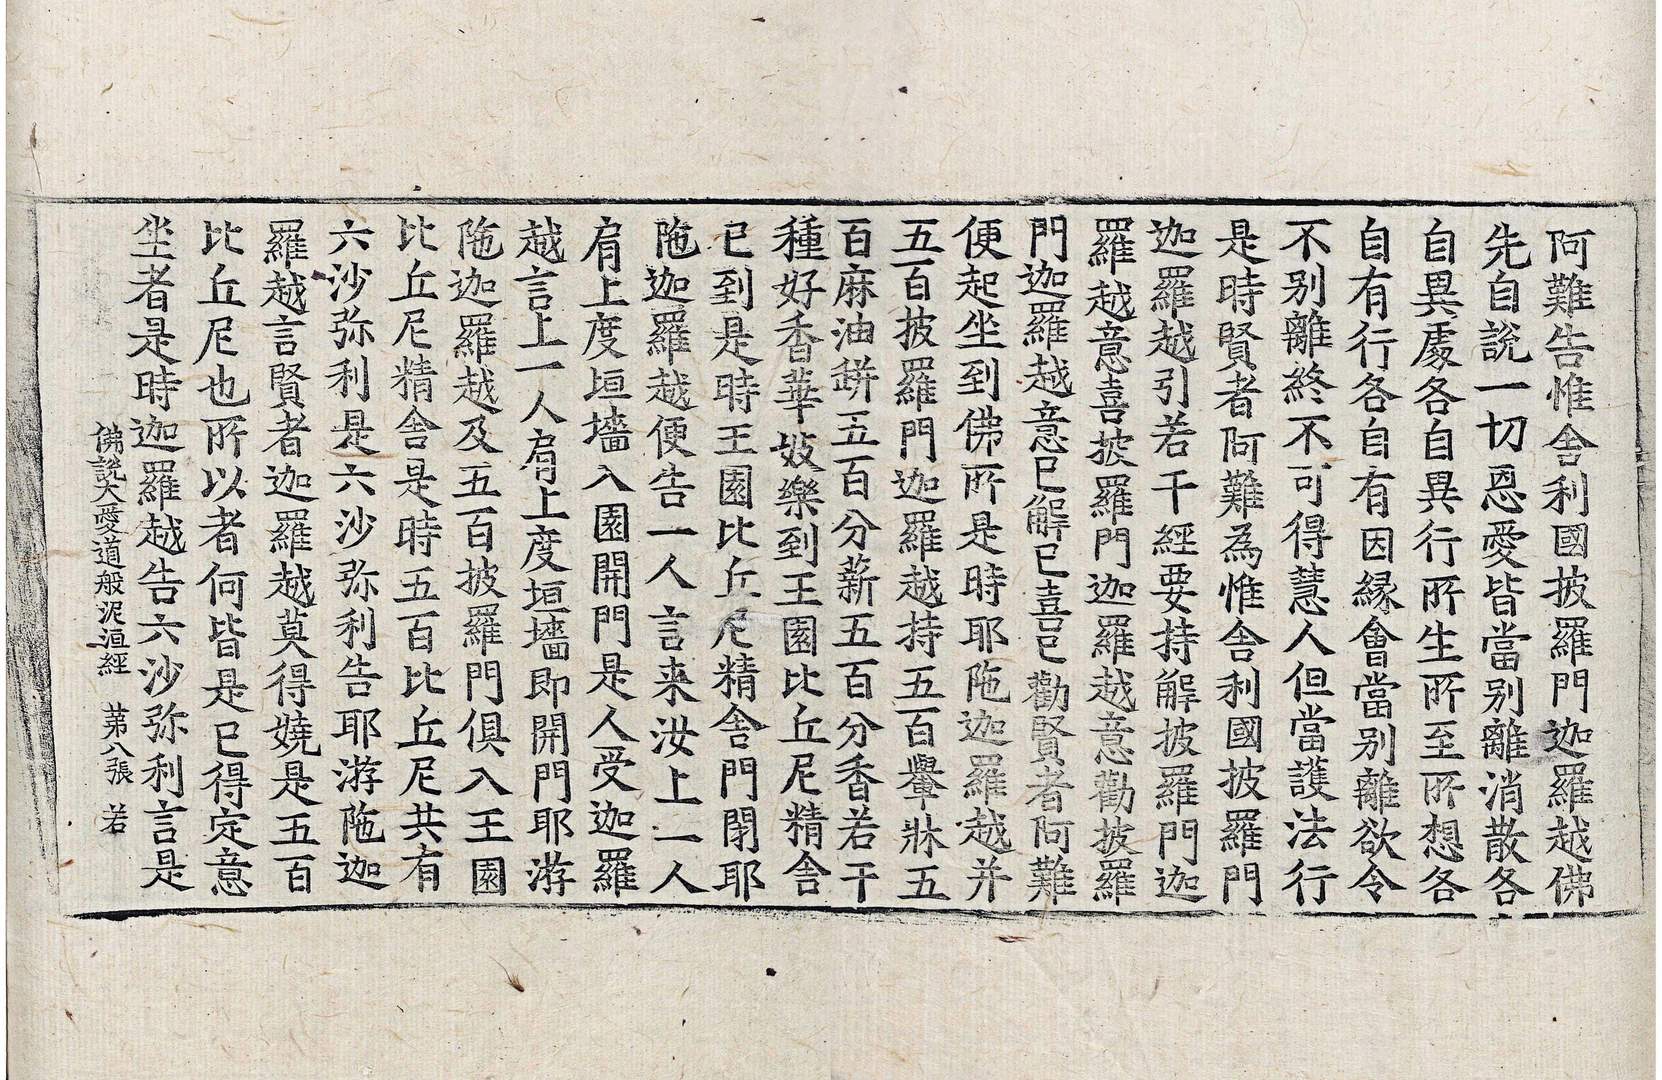 阿難告惟舍利國披羅門迦羅越佛
先自說一切恩愛皆當別離消散各
自異處各自異行所生所至所想各
自有行各自有因緣會當別離欲令
不別離終不可得慧人但當護法行
是時賢者阿難為惟舍利國披羅門
迦羅越引若干經要持解披羅門迦
羅越意喜披羅門迦羅越意勸披羅
門迦羅越意已解已喜已勸賢者阿難
便起坐到佛所是時耶陁迦羅越并
五百披羅門迦羅越持五百轝牀五
百麻油缾五百分薪五百分香若干
種好香華妓樂到王園比丘尼精舍
已到是時王園比丘尼精舍門閉耶
陁迦羅越便告一人言来汝上一人
肩上度垣墻入園開門是人受迦羅
越言上一人肩上度垣墻即開門耶游
陁迦羅越及五百披羅門俱入王園
比丘尼精舍是時五百比丘尼共有
六沙弥利是六沙弥利告耶游陁迦
羅越言賢者迦羅越莫得嬈是五百
比丘尼也所以者何皆是已得定意
坐者是時迦羅越告六沙弥利言是
佛說大愛道般泥洹經 苐八張 若